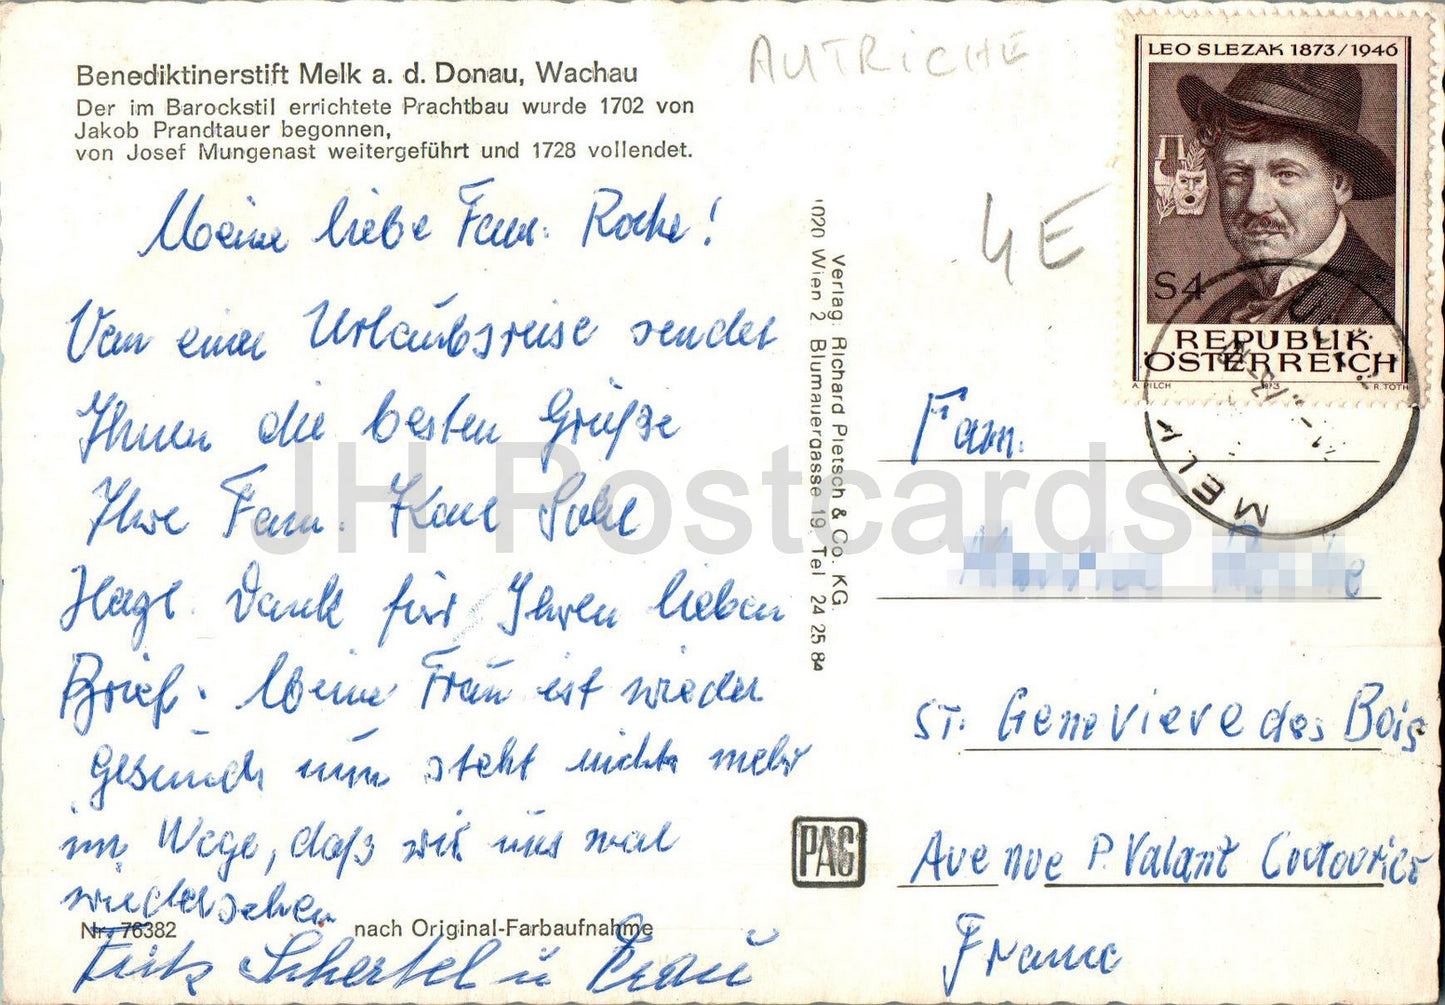 Benediktinerstift Melk a. d. Donau, Wachau
Der im Barockstil errichtete Prachtbau wurde 1702 von
Jakob Prandtauer begonnen,
von Josef Mungenast weitergeführt und 1728 vollendet.
AUTRICHE
4E
LEO SLEZAK 1873/1946
S4
REPUBLIK
ÖSTERREICH
A. PILCH 1973 R. TOTH
MELK
Meine liebe Fam. Roche!
Von einer Urlaubsreise sendet
Ihnen die besten Grüße
Ihre Fam. Karl
Dank für Ihren lieben
Brief. Meine Frau ist wieder
gesund, nun steht nichts mehr
im Wege, daß wir uns mal
wiedersehen
Fritz Schertel u Frau
Nr. 76382
nach Original-Farbaufnahme
Verlag: Richard Pietsch & Co. KG.
1020 Wien 2 Blumauergasse 19 Tel 24 25 84
PAG
Fam.
ST. Genevieve des Bois
Avenue P. Valant
France
JH Postcards